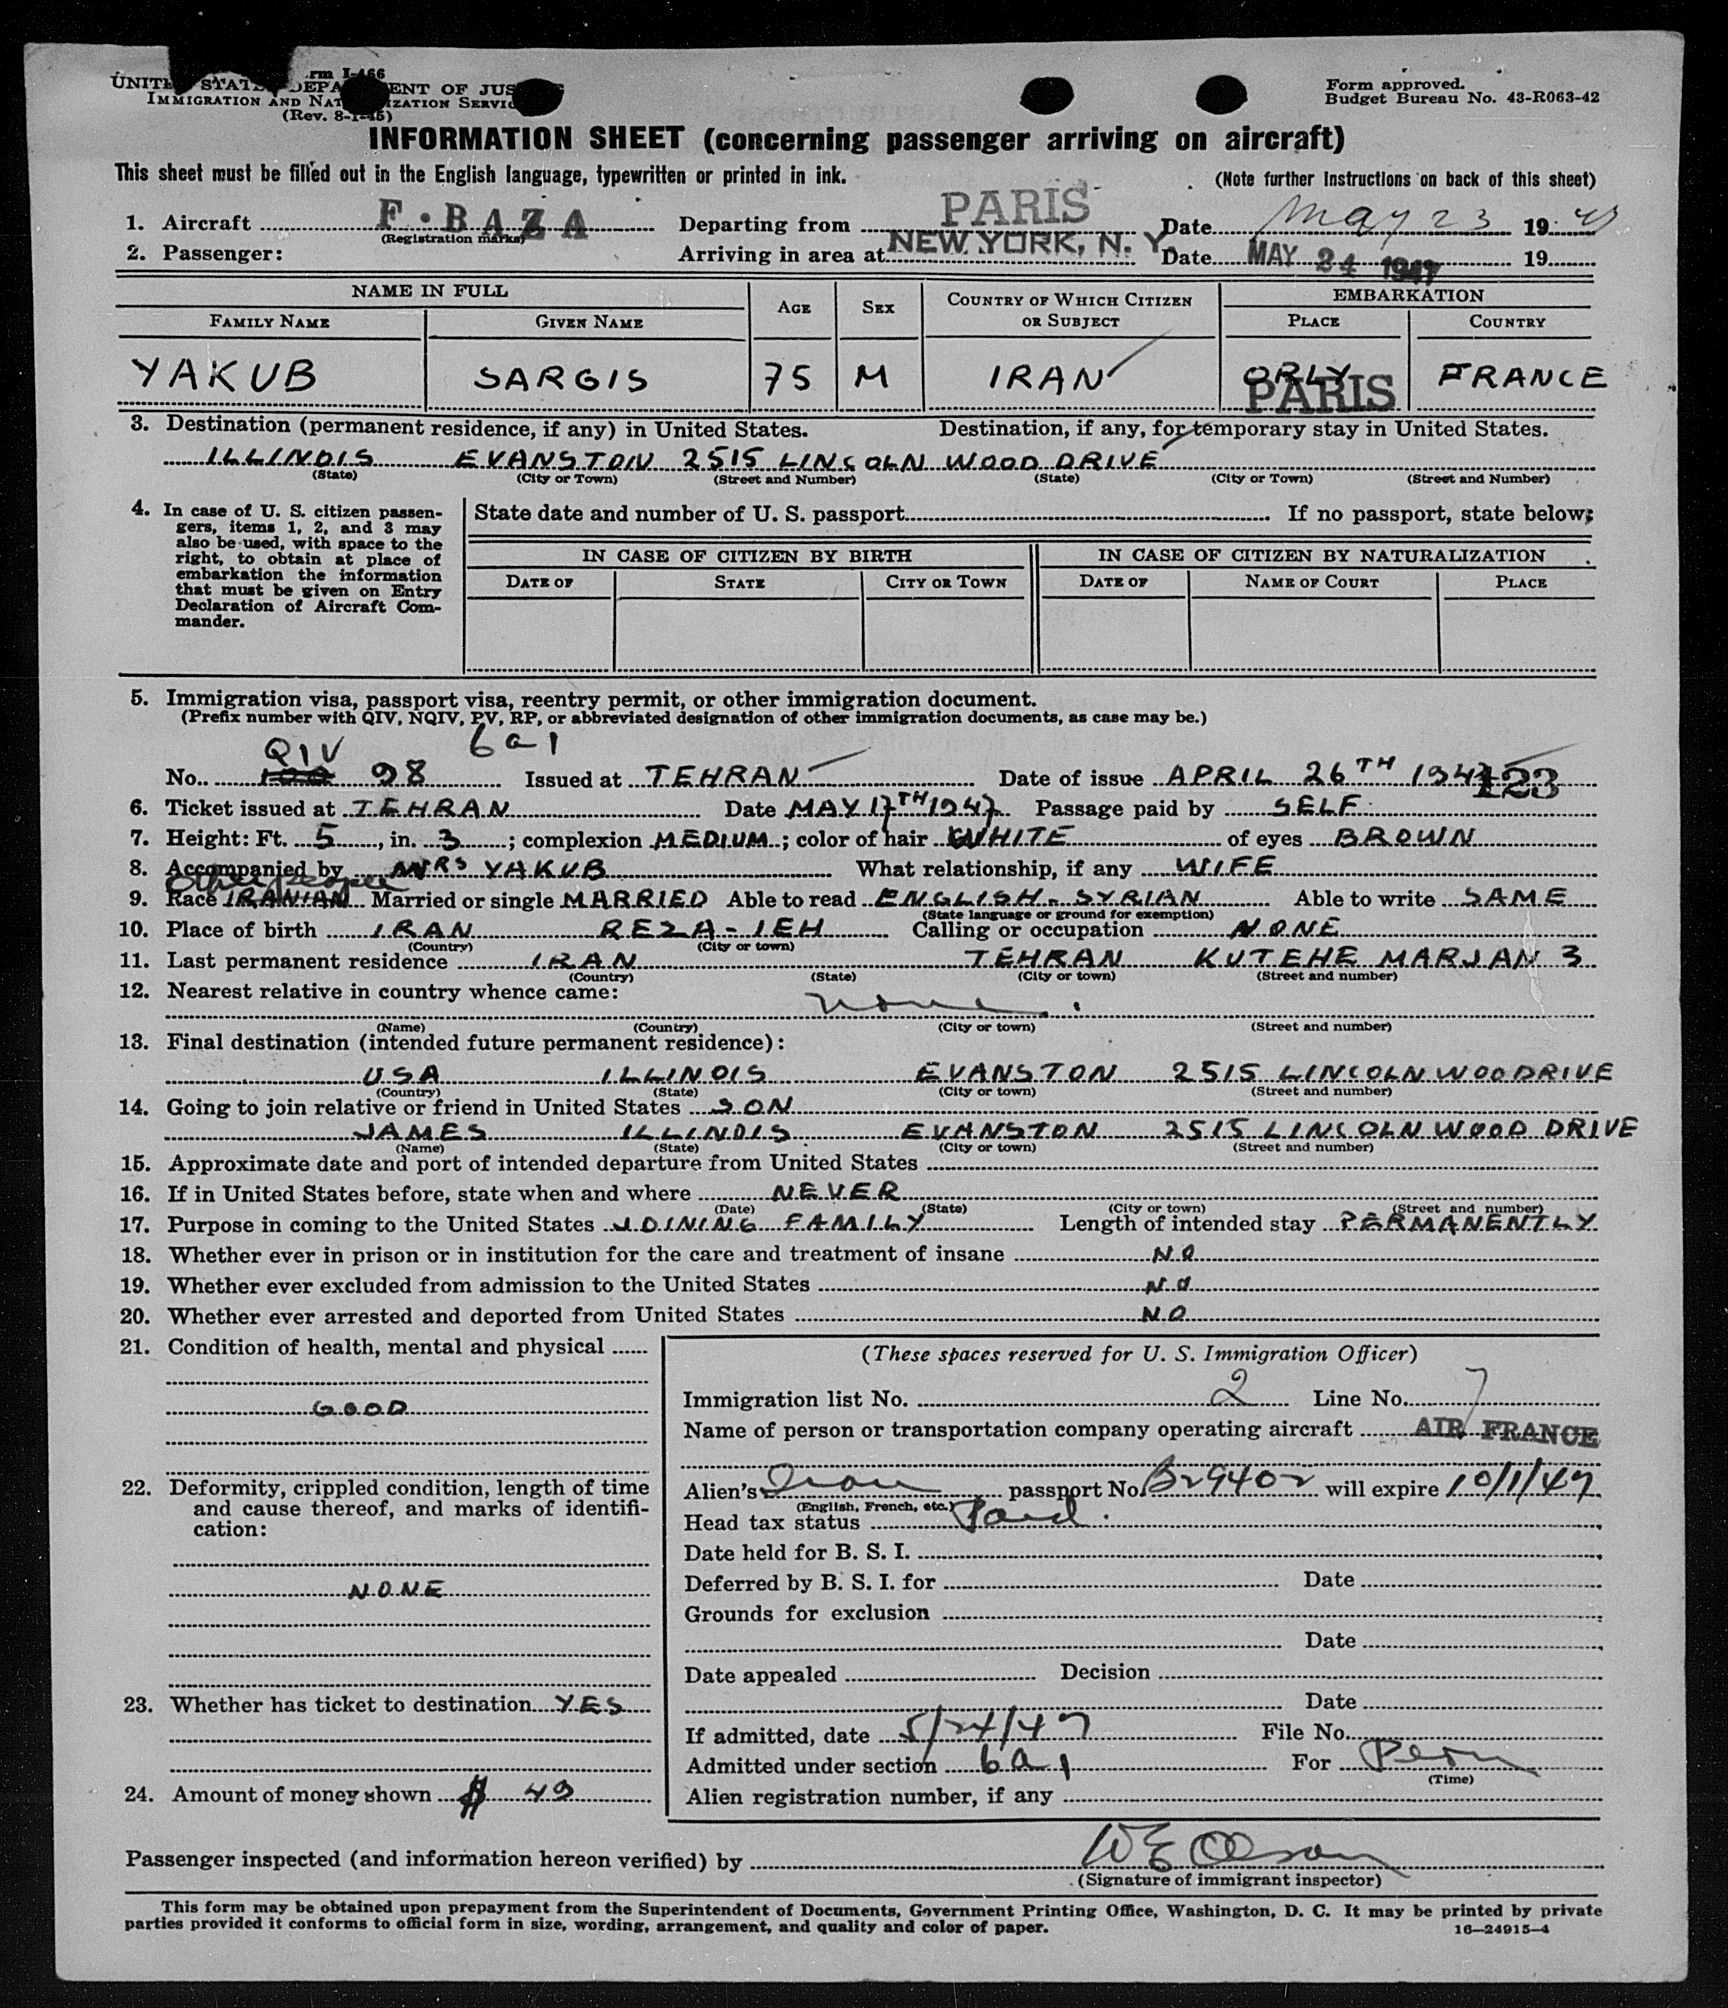 Form I-466
UNITED STATES DEPARTMENT OF JUSTICE
IMMIGRATION AND NATURALIZATION SERVICE
(Rev. 8-1-45)
Form approved.
Budget Bureau No. 43-R063-42
INFORMATION SHEET (concerning passenger arriving on aircraft)
This sheet must be filled out in the English language, typewritten or printed in ink. (Note further instructions on back of this sheet)
1. Aircraft F.BAZA Departing from PARIS Date May 23 1947
(Registration marks)
2. Passenger: Arriving in area at NEW YORK, N. Y. Date MAY 24 1947 19
NAME IN FULL AGE SEX COUNTRY OF WHICH CITIZEN OR SUBJECT EMBARKATION
FAMILY NAME GIVEN NAME PLACE COUNTRY
YAKUB SARGIS 75 M IRAN ORLY PARIS FRANCE
3. Destination (permanent residence, if any) in United States. Destination, if any, for temporary stay in United States.
ILLINOIS EVANSTON 2515 LINCOLN WOOD DRIVE
(State) (City or Town) (Street and Number) (State) (City or Town) (Street and Number)
4. In case of U. S. citizen passen-
gers, items 1, 2, and 3 may
also be used, with space to the
right, to obtain at place of
embarkation the information
that must be given on Entry
Declaration of Aircraft Com-
mander.
State date and number of U. S. passport If no passport, state below:
IN CASE OF CITIZEN BY BIRTH IN CASE OF CITIZEN BY NATURALIZATION
DATE OF STATE CITY OR TOWN DATE OF NAME OF COURT PLACE
5. Immigration visa, passport visa, reentry permit, or other immigration document.
(Prefix number with QIV, NQIV, PV, RP, or abbreviated designation of other immigration documents, as case may be.)
QIV 6a1
No. 98 Issued at TEHRAN Date of issue APRIL 26TH 1947 123
6. Ticket issued at TEHRAN Date MAY 17TH 1947 Passage paid by SELF
7. Height: Ft. 5, in. 3; complexion MEDIUM; color of hair WHITE of eyes BROWN
8. Accompanied by MRS YAKUB What relationship, if any WIFE
Other peoples
9. Race IRANIAN Married or single MARRIED Able to read ENGLISH - SYRIAN Able to write SAME
(State language or ground for exemption)
10. Place of birth IRAN REZA-IEH Calling or occupation NONE
(Country) (City or town)
11. Last permanent residence IRAN TEHRAN KUTEHE MARJAN 3
(Country) (State) (City or town) (Street and number)
12. Nearest relative in country whence came:
none.
(Name) (Country) (City or town) (Street and number)
13. Final destination (intended future permanent residence):
USA ILLINOIS EVANSTON 2515 LINCOLN WOODRIVE
(Country) (State) (City or town) (Street and number)
14. Going to join relative or friend in United States SON
JAMES ILLINOIS EVANSTON 2515 LINCOLN WOOD DRIVE
(Name) (State) (City or town) (Street and number)
15. Approximate date and port of intended departure from United States
16. If in United States before, state when and where NEVER
(Date) (State) (City or town) (Street and number)
17. Purpose in coming to the United States JOINING FAMILY Length of intended stay PERMANENTLY
18. Whether ever in prison or in institution for the care and treatment of insane NO
19. Whether ever excluded from admission to the United States NO
20. Whether ever arrested and deported from United States NO
21. Condition of health, mental and physical
GOOD
22. Deformity, crippled condition, length of time
and cause thereof, and marks of identifi-
cation:
NONE
23. Whether has ticket to destination YES
24. Amount of money shown $ 49
(These spaces reserved for U. S. Immigration Officer)
Immigration list No. 2 Line No. 7
Name of person or transportation company operating aircraft AIR FRANCE
Alien's Iran passport No. B29402 will expire 10/1/47
(English, French, etc.)
Head tax status Paid.
Date held for B. S. I.
Deferred by B. S. I. for Date
Grounds for exclusion
Date
Date appealed Decision
Date
If admitted, date 5/24/47 File No.
Admitted under section 6a1 For Perm
(Time)
Alien registration number, if any
Passenger inspected (and information hereon verified) by W E Olson
(Signature of immigrant inspector)
This form may be obtained upon prepayment from the Superintendent of Documents, Government Printing Office, Washington, D. C. It may be printed by private
parties provided it conforms to official form in size, wording, arrangement, and quality and color of paper. 16—24915-4